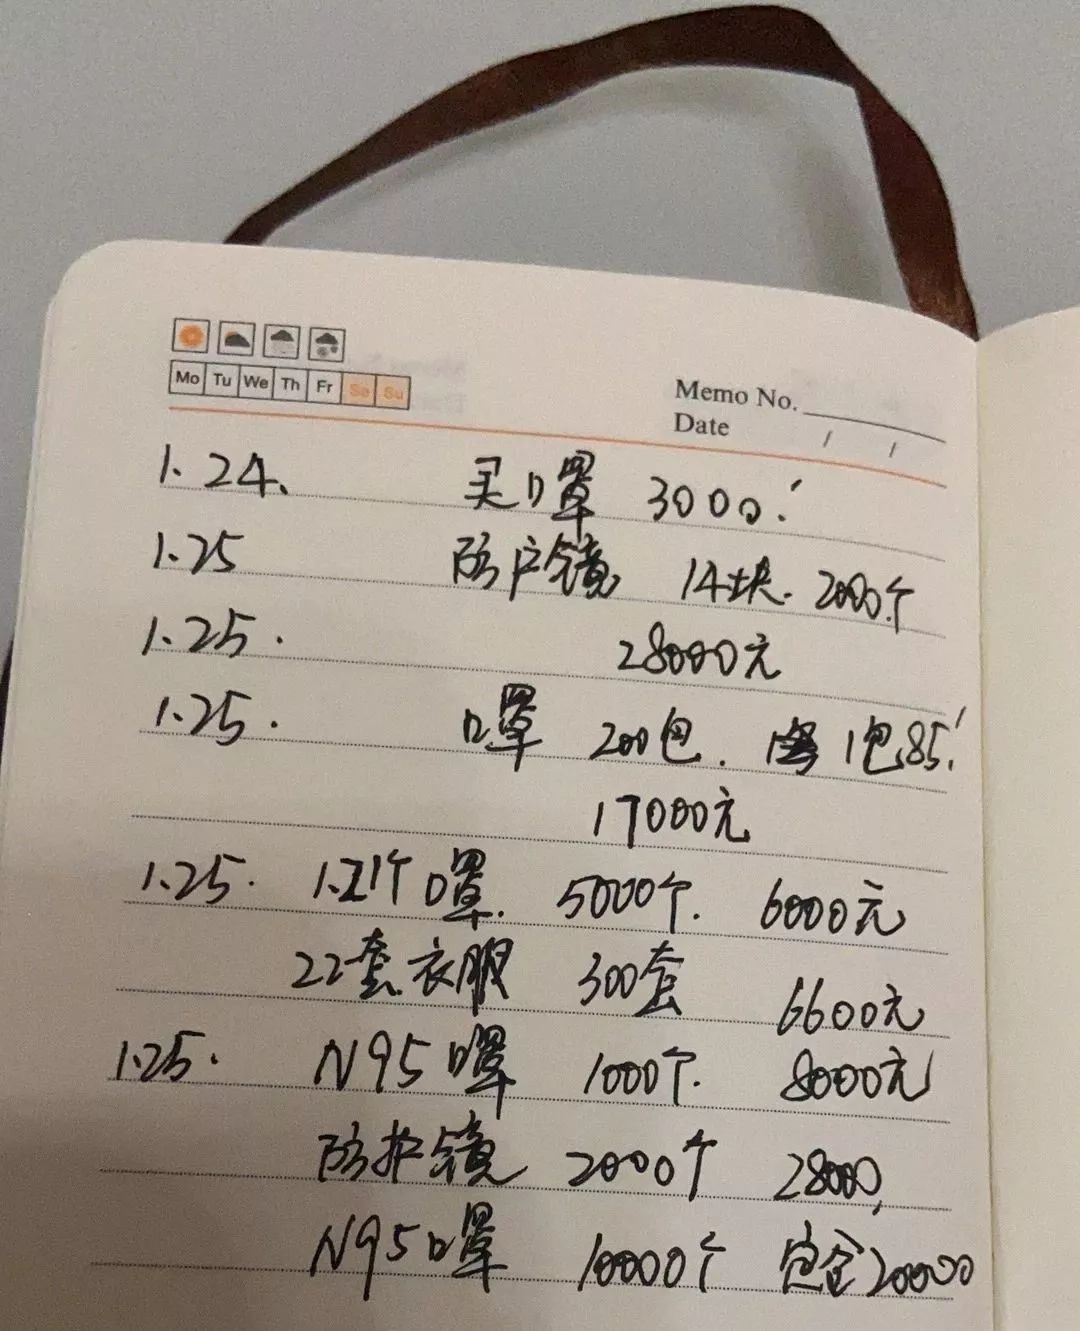 Mo Tu We Th Fr Sa Su
Memo No.
Date / /
1.24、 买口罩 3000.
1.25 防户镜 14块. 2000个
1.25. 28000元
1.25. 口罩 200包. 1包85.
17000元
1.25. 1.21个口罩. 5000个. 6000元
22套衣服 300套 6600元
1.25. N95口罩 1000个. 8000元
防护镜 2000个 28000,
N95口罩 10000个 定金200000